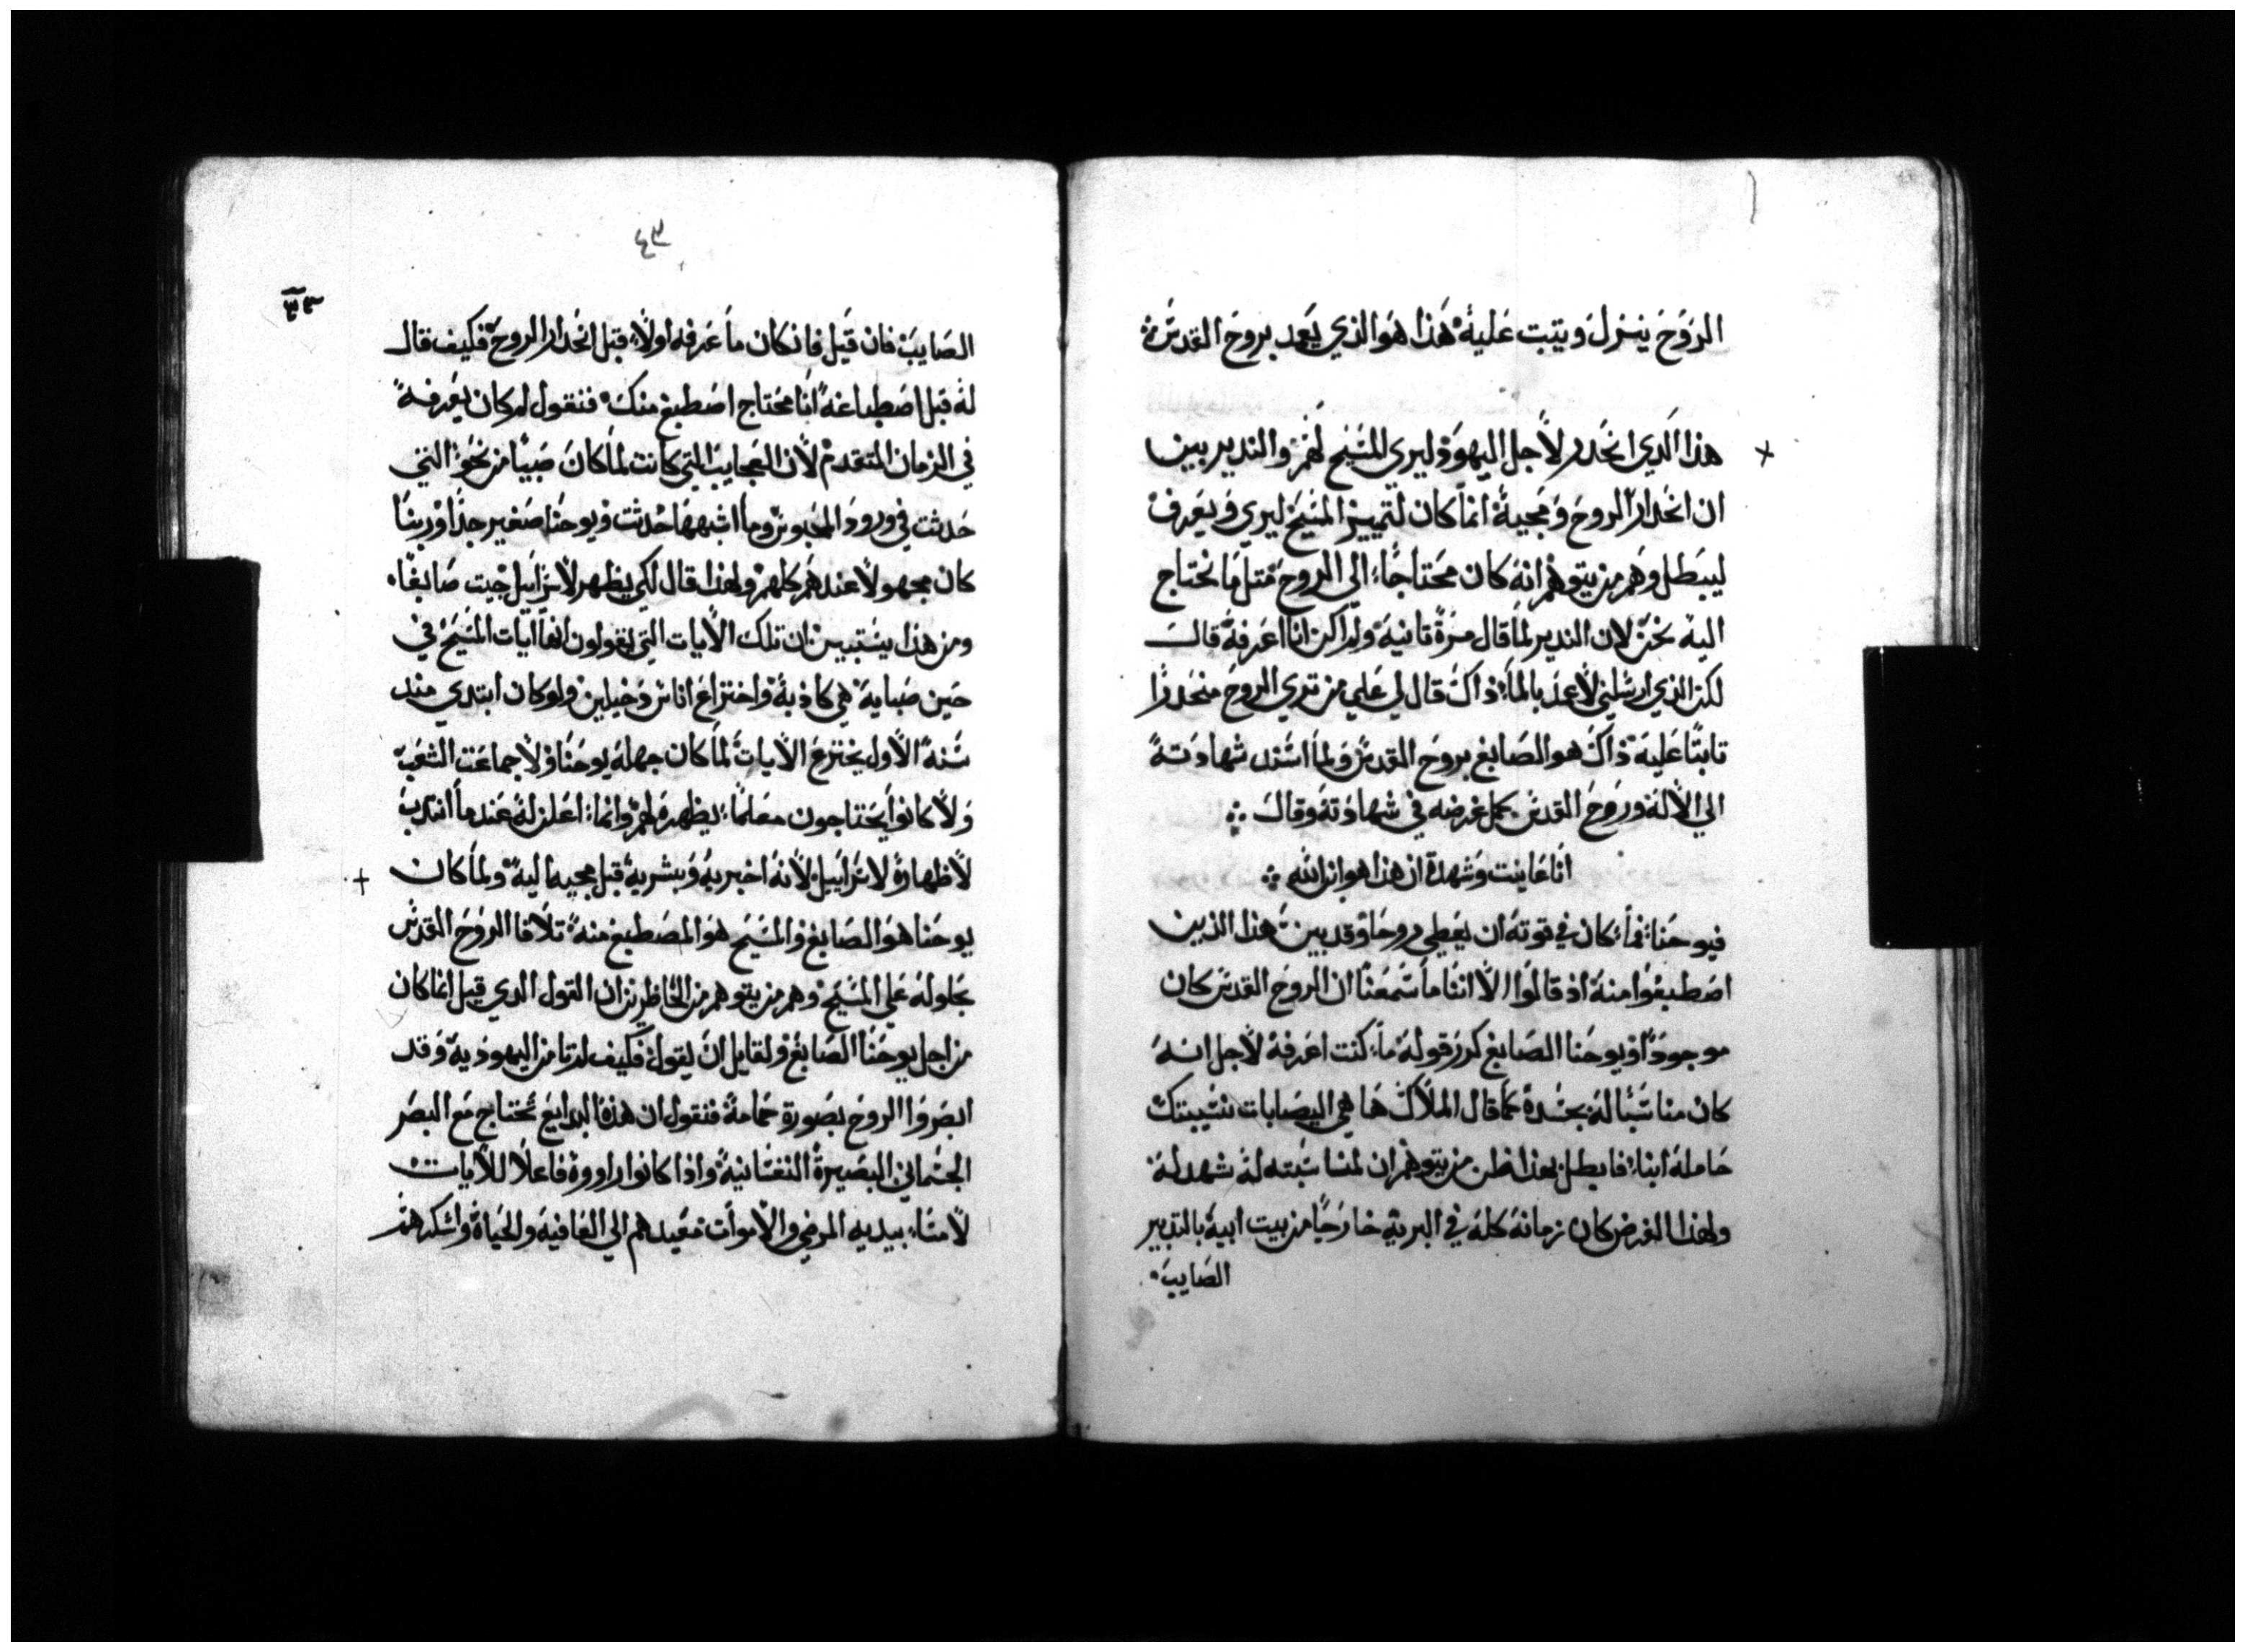 الروح ينزل ويتبت عليه هذا هو الذي يعمد بروح القدس
هذا الدي انحدر لاجل اليهود ليري المسيح لهم والندير بين
ان انحدار الروح ومجيه انما كان لتمييز المسيح ليري ويعرف
ليبطل وهم من يتوهم انه كان محتاجا الى الروح متل ما نحتاج
اليه نحن لان الندير لما قال مرة تانيه ولم اكن انا اعرفه قال
لكن الذي ارسلني لاعمد بالماء ذاك قال لي علي من تري الروح منحدرا
تابتا عليه ذاك هو الصابغ بروح القدس ولما اسند شهادته
الي الاله وروح القدس كمل غرضه في شهادته وقال
انا عاينت وشهدة ان هذا هو ابن الله
فيوحنا فما كان في قوته ان يعطي روحا وقد بين هذا الذين
اصطبغوا منه اذ قالوا الا اننا ما سمعنا ان الروح القدس كان
موجودا ويوحنا الصابغ كرر قوله ما كنت اعرفه لاجل انه
كان مناسبا له بجسده كما قال الملاك ها هي اليصابات نسيبتك
حامله ابنا فابطل بهذا ظن من يتوهم ان لمناسبته له شهد له
ولهذا الغرض كان زمانه كله في البريه خارجا من بيت ابيه بالتدبير
الصايب
٤٣
٣٣
الصايب فان قيل فان كان ما عرفه اولا قبل انحدار الروح فكيف قال
له قبل اصطباغه انا محتاج اصطبغ منك فنقول لم كان يعرفه
في الزمان المتقدم لان العجايب التي كانت لما كان صبيا من نحو التي
حدثت في ورود المجوس وما اشبهها حدثت ويوحنا صغير جدا وربنا
كان مجهولا عندهم كلهم ولهذا قال لكي يظهر لاسراييل جيت صابغا
ومن هذا يستبين ان تلك الايات التي يقولون انها ايات المسيح في
حين صبايه هي كاذبة واختراع اناس دخيلين ولو كان ابتدي مند
سنه الاول يخترع الايات لما كان جهله يوحنا ولا جماعت الشعب
ولا كانوا يحتاجون معلما يظهره لهم وانما اعلن له عندما انتدب
لاظهاره لاسراييل لانه اخبر به وبشر به قبل مجيه اليه ولما كان
يوحنا هو الصابغ والمسيح هو المصطبغ منه تلافا الروح القدس
بحلوله علي المسيح وهم من يتوهم من الحاظرين ان القول الدي قيل انما كان
من اجل يوحنا الصابغ ولقايل ان يقول فكيف لم تامن اليهوديه وقد
ابصروا الروح بصورة حمامة فنقول ان هذه البدايع تحتاج مع البصر
الجسماني البصيرة النفسانية واذا كانوا راووه فاعلا للايات
لامسا بيديه المرضي والاموات معيدهم الي العافيه والحياة واسكرهم